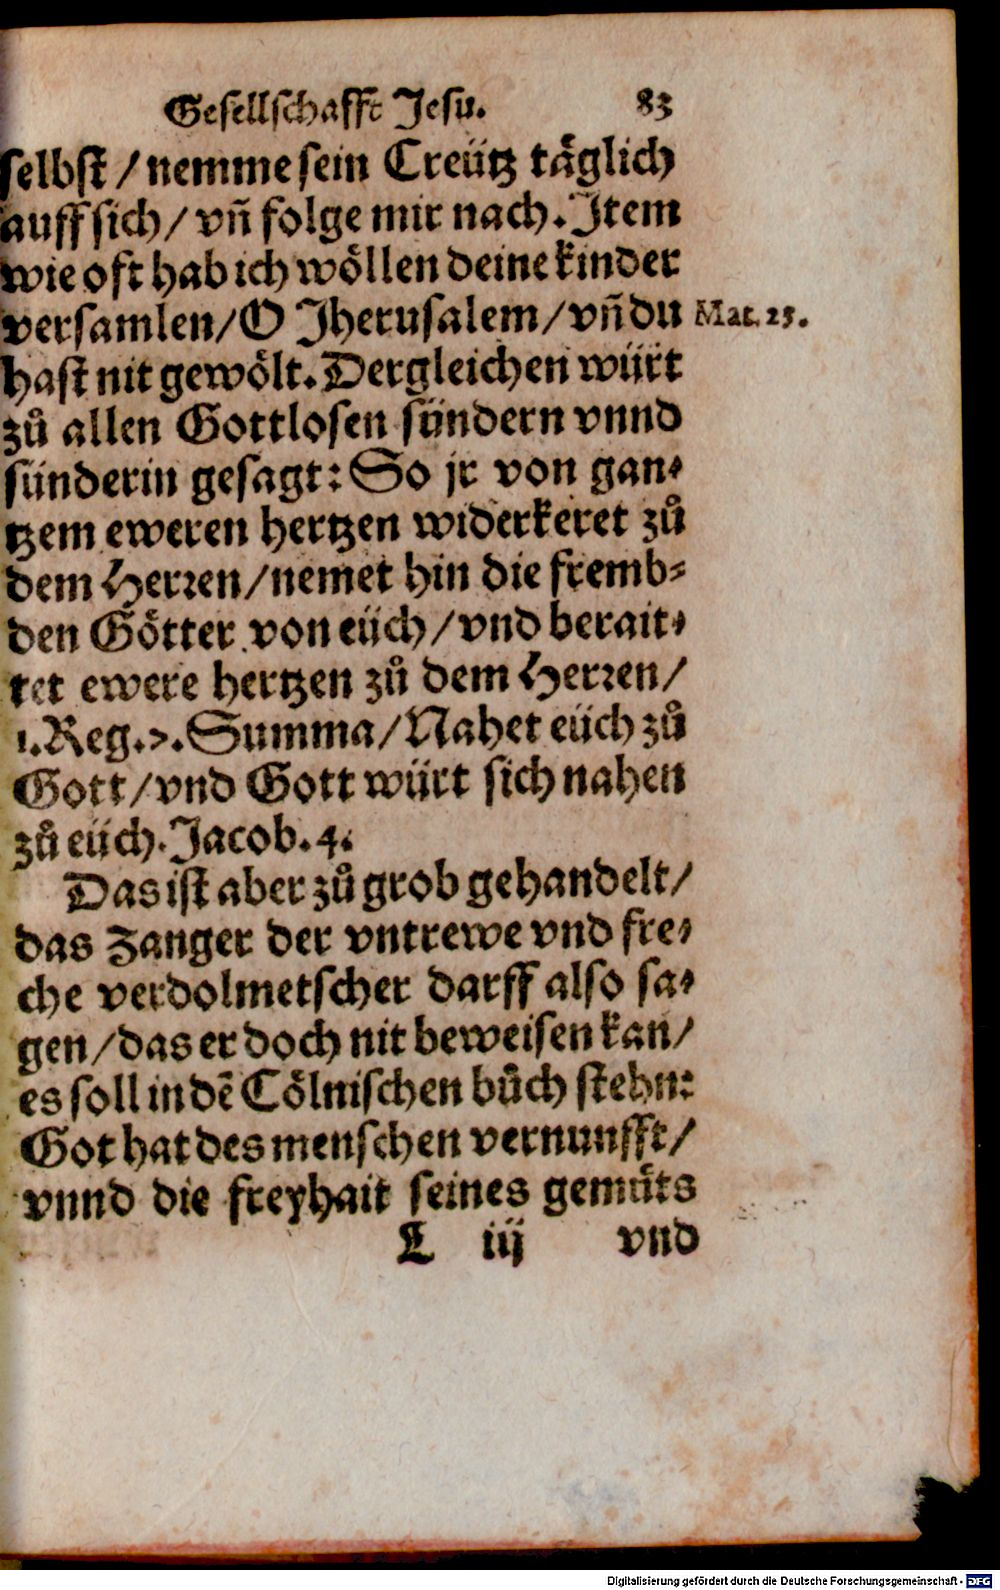 Gesellschafft Jesu. 83
selbst / nemme sein Creütz täglich
auff sich / vñ folge mir nach. Item
wie oft hab ich wöllen deine kinder
versamlen / O Jherusalem / vñ du
Mat. 23.
hast nit gewölt. Dergleichen würt
zů allen Gottlosen sündern vnnd
sünderin gesagt: So jr von gan⸗
tzem eweren hertzen widerkeret zů
dem Herren / nemet hin die fremb⸗
den Götter von eüch / vnd berait⸗
tet ewere hertzen zů dem Herren /
1. Reg. 7. Summa / Nahet eüch zů
Gott / vnd Gott würt sich nahen
zů eüch. Jacob. 4.
Das ist aber zů grob gehandelt /
das Zanger der vntrewe vnd fre⸗
che verdolmetscher darff also sa⸗
gen / das er doch nit beweisen kan /
es soll in dē Cölnischen bůch stehn:
Got hat des menschen vernunfft /
vnnd die freyhait seines gemůts
L iij vnd
Digitalisierung gefördert durch die Deutsche Forschungsgemeinschaft - DFG